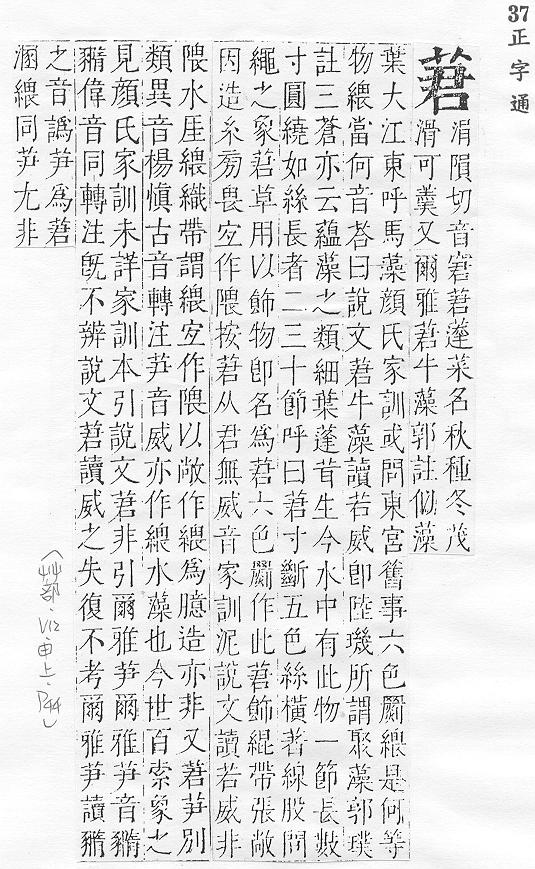 37正字通
莙
涓隕切音窘莙薘菜名秋種冬茂
滑可羹又爾雅莙牛藻郭註似藻
葉大江東呼馬藻顔氏家訓或問東宮舊事六色罽緦是何等
物緦當何音荅曰說文莙牛藻讀若威卽陸璣所謂聚藻郭璞
註三蒼亦云蘊藻之類細葉蓬茸生今水中有此物一節長數
寸圓繞如絲長者二三十節呼曰莙寸斷五色絲橫著線股間
繩之象莙草用以飾物卽名爲莙六色罽作此莙飾緄帶張敞
因造糸旁畏宐作隈按莙从君無威音家訓泥說文讀若威非
隈水厓緦織帶謂緦宐作隈以敞作緦爲臆造亦非又莙䓲別
類異音楊愼古音轉注䓲音威亦作緦水藻也今世百索象之
見顔氏家訓未詳家訓本引說文莙非引爾雅䓲爾雅䓲音䝐
䝐偉音同轉注旣不辨說文莙讀威之失復不考爾雅䓲讀䝐
之音譌䓲爲莙
溷緦同䓲尤非
(艸部·V12·申上·P44)